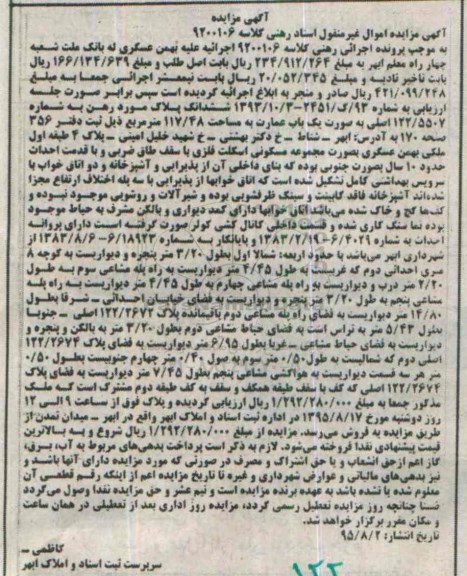 آگهی مزایده
آگهی مزایده اموال غیرمنقول اسناد رهنی کلاسه ۹۲۰۰۱۰۶
به موجب پرونده اجرائی رهنی کلاسه ۹۲۰۰۱۰۶ اجرائیه علیه بهمن عسگری له بانک ملت شعبه
چهار راه معلم ابهر به مبلغ ۲۳۴/۹۱۲/۲۶۴ ریال بابت اصل طلب و مبلغ ۱۶۶/۱۳۴/۶۳۹ ریال
بابت تاخیر تادیه و مبلغ ۲۰/۰۵۲/۳۴۵ ریال بابت نیمعشر اجرائی جمعا به مبلغ
۴۲۱/۰۹۹/۲۴۸ ریال صادر و منجر به ابلاغ اجرائیه گردیده است سپس برابر صورت جلسه
ارزیابی به شماره ۹۳/ک/۲۴۵۱-۱۳۹۳/۱۰/۳ ششدانگ پلاک مورد رهن به شماره
۱۲۲/۵۵۰۷ اصلی به صورت یک باب عمارت به مساحت ۱۱۷/۴۸ مترمربع ذیل ثبت دفتر ۳۵۶
صفحه ۱۷۰ به آدرس: ابهر – شناط – خ دکتر بهشتی – خ شهید خلیل امینی – پلاک ۴ طبقه اول
ملکی بهمن عسگری بصورت مجموعه مسکونی اسکلت فلزی با سقف طاق ضربی و با قدمت احداث
حدود ۱۰ سال بصورت جنوبی بوده که بنای داخلی آن از پذیرایی و آشپزخانه و دو اتاق خواب با
سرویس بهداشتی کامل تشکیل شده است که اتاق خوابها از پذیرایی با سه پله اختلاف ارتفاع مجزا
شده‌اند آشپزخانه فاقد کابینت و سینک ظرفشویی بوده و شیرآلات و روشویی موجود نبوده و
کف‌ها گچ و خاک شده می‌باشد اتاق خوابها دارای کمد دیواری و بالکن مشرف به حیاط موجود
بوده نما سنگ کاری شده و قسمت داخلی کانال کشی کولر صورت گرفته است دارای پروانه
احداث به شماره ۶/۴۰۲۹-۱۳۸۳/۲/۱۹ و پایانکار به شماره ۶/۱۸۹۲۳-۱۳۸۳/۸/۶ از
شهرداری ابهر می‌باشد با حدود اربعه: شمالا اول بطول ۳/۲۰ متر پنجره و دیواریست به کوچه ۸
متری احداثی دوم که غربیست به طول ۴/۴۵ متر دیواریست به راه پله مشاعی سوم به طول
۲/۲۰ متر درب و دیواریست به راه پله مشاعی چهارم به طول ۴/۴۵ متر دیواریست به راه پله
مشاعی پنجم به طول ۳/۲۰ متر پنجره و دیواریست به فضای خیابان احداثی – شرقا بطول
۱۴/۸۰ متر دیواریست به فضای راه پله مشاعی دوم باقیمانده پلاک ۱۲۲/۲۶۷۲ اصلی – جنوبا
بطول ۵/۴۳ متر به تراس است به فضای حیاط مشاعی دوم بطول ۳/۲۰ متر به بالکن و پنجره و
دیواریست به فضای حیاط مشاعی – غربا بطول ۶/۹۵ متر دیواریست به فضای پلاک ۱۲۲/۲۶۷۴
اصلی دوم که شمالیست به طول ۰/۵۰ متر سوم به طول ۰/۴۰ متر چهارم جنوبیست بطول ۰/۵۰
متر هر سه قسمت دیواریست به هواکش مشاعی پنجم بطول ۷/۴۵ متر دیواریست به فضای پلاک
۱۲۲/۲۶۷۴ اصلی که کف با سقف طبقه همکف و سقف به کف طبقه دوم مشترک است که ملک
مذکور جمعا به مبلغ ۱/۲۹۲/۲۸۰/۰۰۰ ریال ارزیابی گردیده و پلاک فوق از ساعت ۹ الی ۱۲
روز دوشنبه مورخ ۱۳۹۵/۸/۱۷ در اداره ثبت اسناد و املاک ابهر واقع در ابهر – میدان تمدن از
طریق مزایده به فروش می‌رسد، مزایده از مبلغ ۱/۲۹۲/۲۸۰/۰۰۰ ریال شروع و به بالاترین
قیمت پیشنهادی نقدا فروخته می‌شود. لازم به ذکر است پرداخت بدهی‌های مربوط به آب، برق،
گاز اعم از حق انشعاب و یا حق اشتراک و مصرف در صورتی که مورد مزایده دارای آنها باشد و
نیز بدهی‌های مالیاتی و عوارض شهرداری و غیره تا تاریخ مزایده اعم از اینکه رقم قطعی آن
معلوم شده یا نشده باشد به عهده برنده مزایده است و نیم عشر و حق مزایده نقدا وصول می‌گردد
ضمنا چنانچه روز مزایده تعطیل رسمی گردد، مزایده روز اداری بعد از تعطیلی در همان ساعت
و مکان مقرر برگزار خواهد شد.
تاریخ انتشار: ۹۵/۸/۲
کاظمی –
سرپرست ثبت اسناد و املاک ابهر
۱۲۲